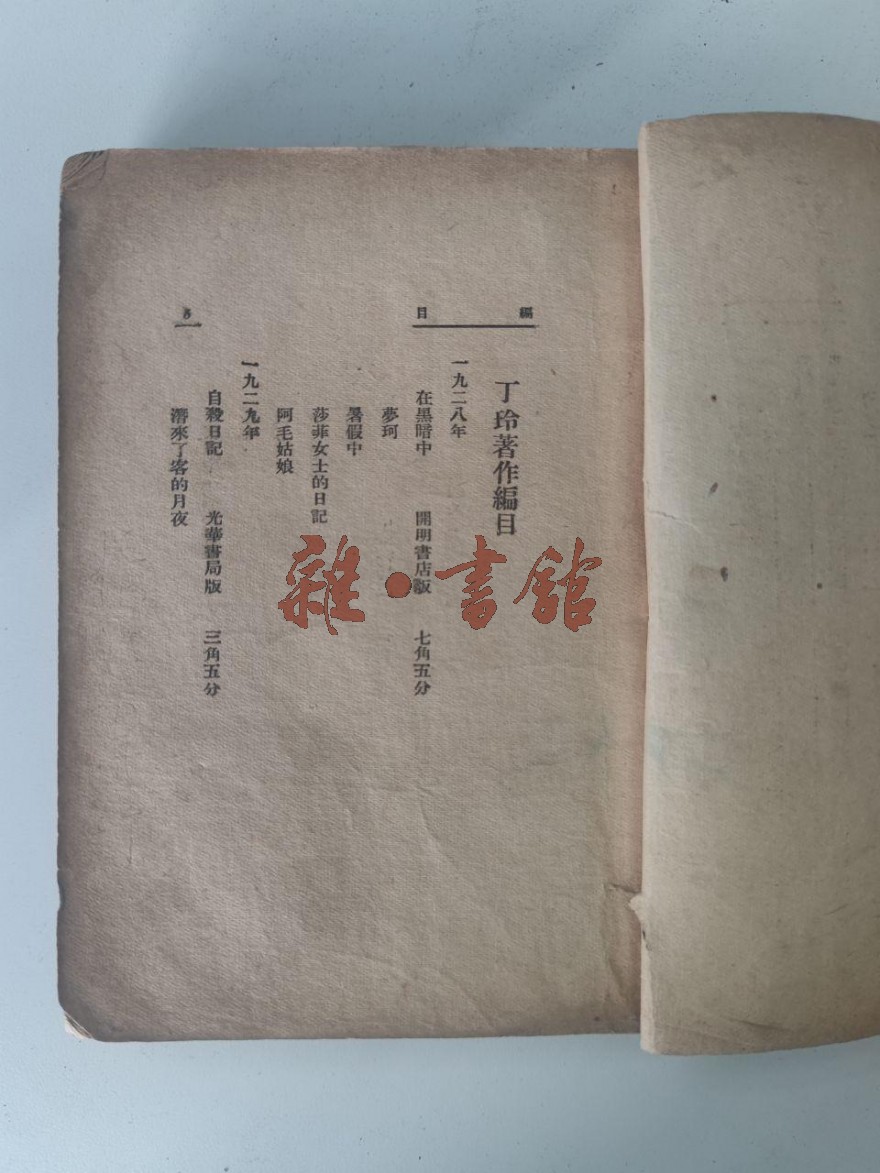 編目
丁玲著作編目
一九二八年
在黑暗中 開明書店版 七角五分
夢珂
暑假中
莎菲女士的日記
阿毛姑娘
一九二九年
自殺日記 光華書局版 三角五分
潛來了客的月夜
雜·書館